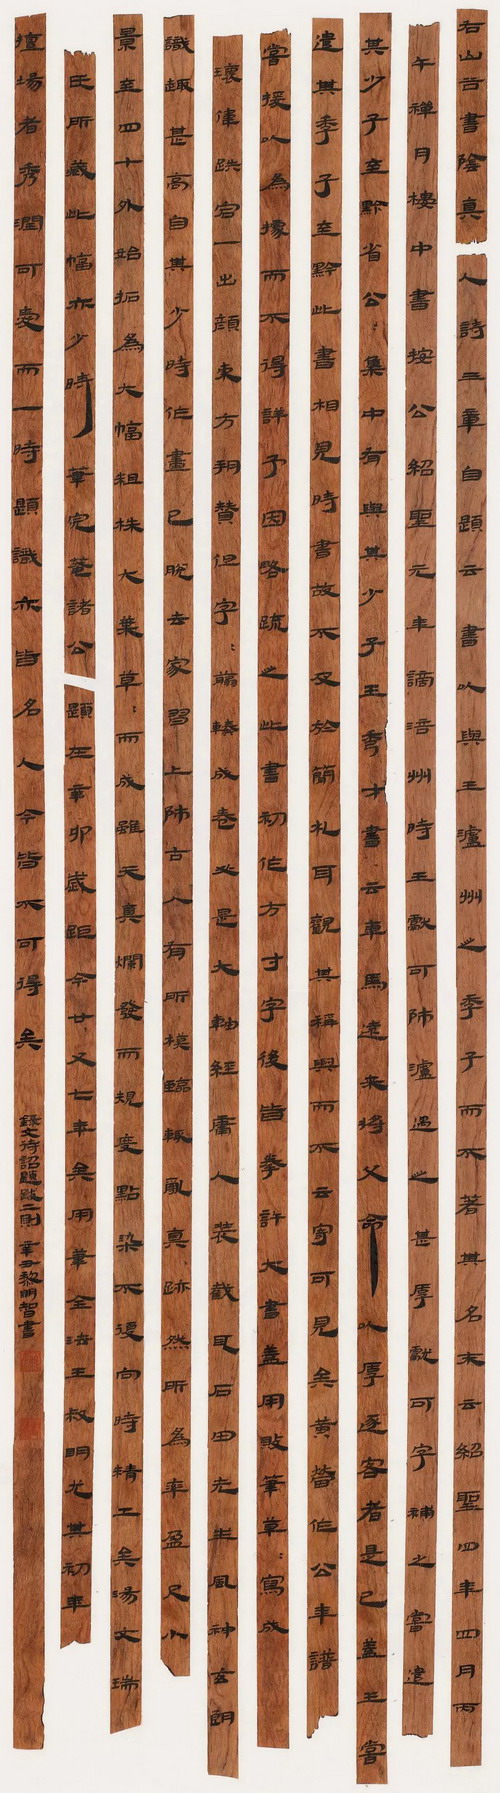 右山谷書陰真人詩三章自題云書以與王瀘州之季子而不著其名末云紹聖四年四月丙
午禪月樓中書按公紹聖元年謫涪州時王獻可帥瀘遇之甚厚獻可字補之嘗遣
其少子至黔省公集中有與其少子王秀才書云車馬遠來將父命以厚逐客者是已蓋王嘗
遣其季子至黔此書相見時書故不及於簡札耳觀其稱與而不云寄可見矣黃㽦作公年譜
嘗援以為據而不得詳予因略疏之此書初作方寸字後皆拳許大書蓋用敗筆草草寫成
瓌偉跌宕一出顏東方朔贊但字字蕭輳成卷必是大軸經庸人裝截耳石田先生風神玄朗
識趣甚高自其少時作畫已脫去家習上師古人有所模臨輒亂真跡然所為率盈尺小
景至四十外始拓為大幅粗株大葉草草而成雖天真爛發而規度點染不復向時精工矣湯文瑞
氏所藏此幅亦少時筆完菴諸公題在辛卯歲距今廿又七年矣用筆全法王叔明尤其初年
擅場者秀潤可愛而一時題識亦皆名人今皆不可得矣
錄文待詔題跋二則 辛丑黎明智書